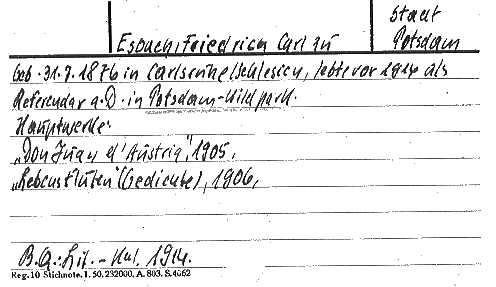 Stadt
Esbach, Friedrich Carl au
Potsdam
Geb. 31.7.1876 in Carlsruhe/Schlesien, lebte vor 1914 als
Referendar a.D. in Potsdam-Wildpark.
Hauptwerke:
„Don Juan d'Austria", 1905,
„Lebensfluten" (Gedichte), 1906,
B.A.: Lit.-Kal. 1914.
Reg. 10 Stichnote. I. 50. 232000. A. 803. S. 4062